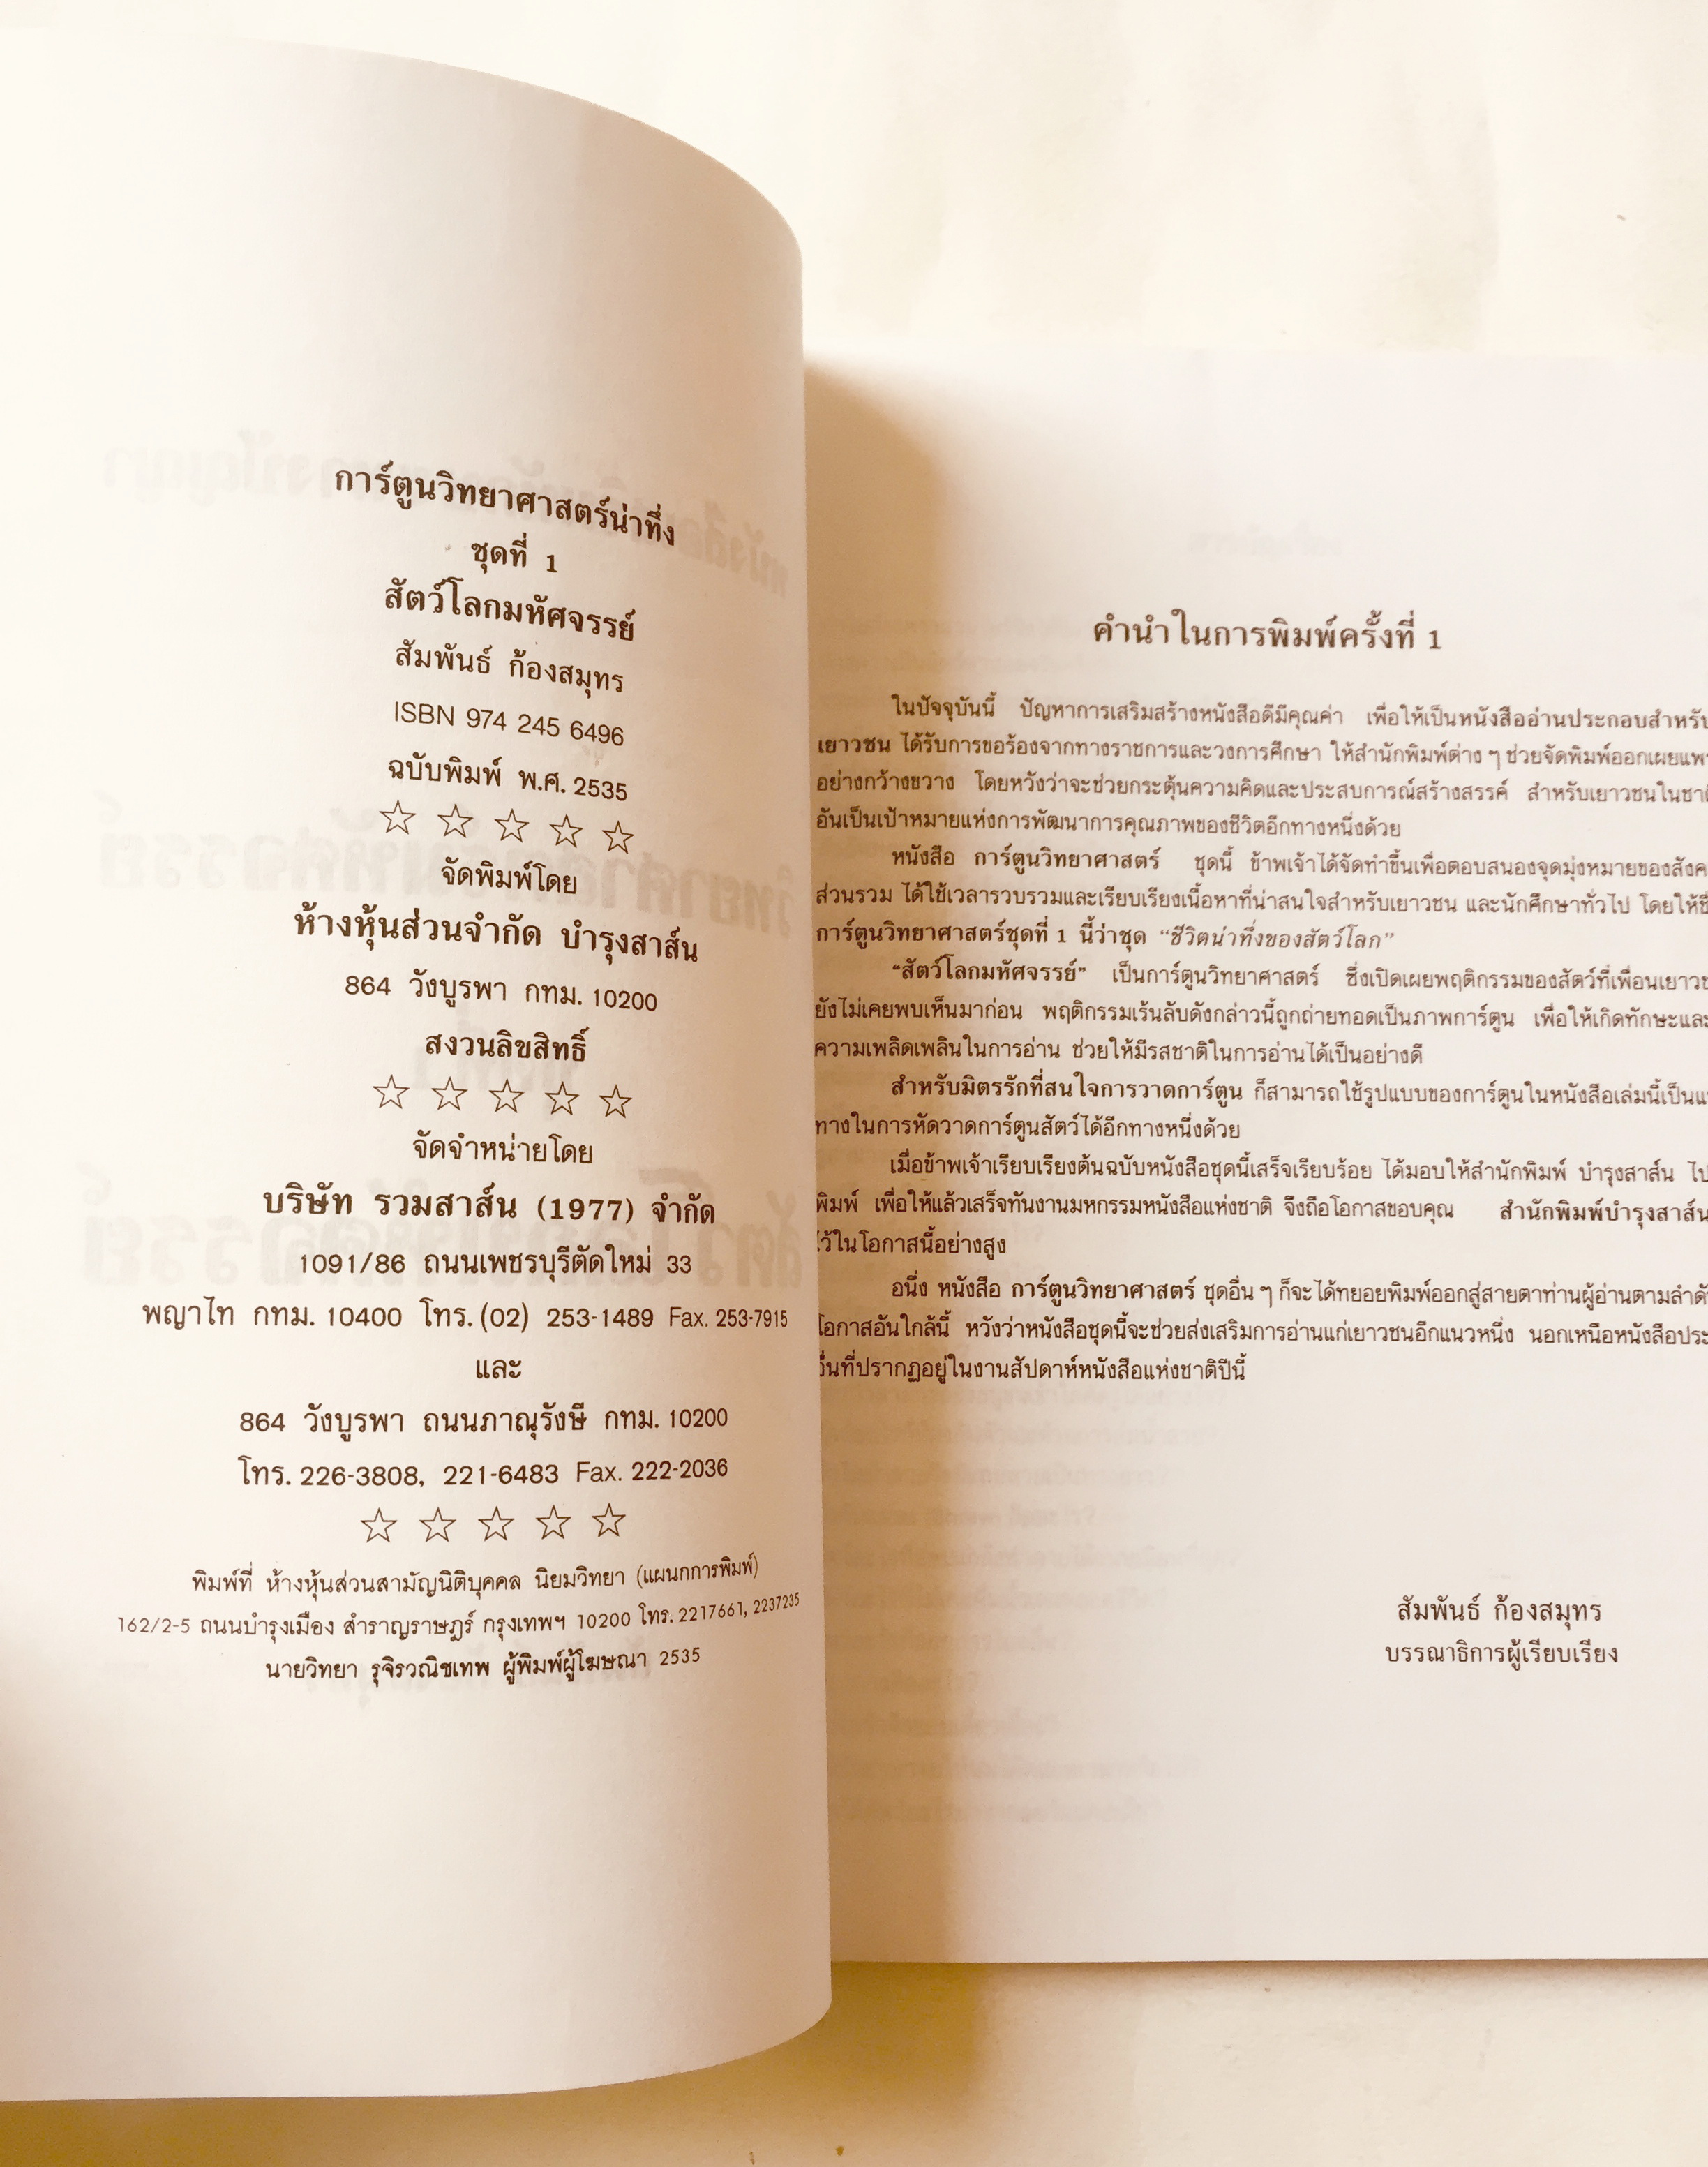 การ์ตูนวิทยาศาสตร์น่าทึ่ง
ชุดที่ 1
สัตว์โลกมหัศจรรย์
สัมพันธ์ ก้องสมุทร
ISBN 974 245 6496
ฉบับพิมพ์ พ.ศ. 2535
☆ ☆ ☆ ☆ ☆
จัดพิมพ์โดย
ห้างหุ้นส่วนจำกัด บำรุงสาส์น
864 วังบูรพา กทม. 10200
สงวนลิขสิทธิ์
☆ ☆ ☆ ☆ ☆
จัดจำหน่ายโดย
บริษัท รวมสาส์น (1977) จำกัด
1091/86 ถนนเพชรบุรีตัดใหม่ 33
พญาไท กทม. 10400 โทร. (02) 253-1489 Fax. 253-7915
และ
864 วังบูรพา ถนนภาณุรังษี กทม. 10200
โทร. 226-3808, 221-6483 Fax. 222-2036
☆ ☆ ☆ ☆ ☆
พิมพ์ที่ ห้างหุ้นส่วนสามัญนิติบุคคล นิยมวิทยา (แผนกการพิมพ์)
162/2-5 ถนนบำรุงเมือง สำราญราษฎร์ กรุงเทพฯ 10200 โทร. 2217661, 2237235
นายวิทยา รุจิรวณิชเทพ ผู้พิมพ์ผู้โฆษณา 2535
คำนำในการพิมพ์ครั้งที่ 1
ในปัจจุบันนี้ ปัญหาการเสริมสร้างหนังสือดีมีคุณค่า เพื่อให้เป็นหนังสืออ่านประกอบสำหรับ
เยาวชน ได้รับการขอร้องจากทางราชการและวงการศึกษา ให้สำนักพิมพ์ต่าง ๆ ช่วยจัดพิมพ์ออกเผยแพ
อย่างกว้างขวาง โดยหวังว่าจะช่วยกระตุ้นความคิดและประสบการณ์สร้างสรรค์ สำหรับเยาวชนในชาติ
อันเป็นเป้าหมายแห่งการพัฒนาการคุณภาพของชีวิตอีกทางหนึ่งด้วย
หนังสือ การ์ตูนวิทยาศาสตร์ ชุดนี้ ข้าพเจ้าได้จัดทำขึ้นเพื่อตอบสนองจุดมุ่งหมายของสังค
ส่วนรวม ได้ใช้เวลารวบรวมและเรียบเรียงเนื้อหาที่น่าสนใจสำหรับเยาวชน และนักศึกษาทั่วไป โดยให้ชื่
การ์ตูนวิทยาศาสตร์ชุดที่ 1 นี้ว่าชุด “ชีวิตน่าทึ่งของสัตว์โลก”
“สัตว์โลกมหัศจรรย์” เป็นการ์ตูนวิทยาศาสตร์ ซึ่งเปิดเผยพฤติกรรมของสัตว์ที่เพื่อนเยาวช
ยังไม่เคยพบเห็นมาก่อน พฤติกรรมเร้นลับดังกล่าวนี้ถูกถ่ายทอดเป็นภาพการ์ตูน เพื่อให้เกิดทักษะและ
ความเพลิดเพลินในการอ่าน ช่วยให้มีรสชาติในการอ่านได้เป็นอย่างดี
สำหรับมิตรรักที่สนใจการวาดการ์ตูน ก็สามารถใช้รูปแบบของการ์ตูนในหนังสือเล่มนี้เป็นแ
ทางในการหัดวาดการ์ตูนสัตว์ได้อีกทางหนึ่งด้วย
เมื่อข้าพเจ้าเรียบเรียงต้นฉบับหนังสือชุดนี้เสร็จเรียบร้อย ได้มอบให้สำนักพิมพ์ บำรุงสาส์น ไป
พิมพ์ เพื่อให้แล้วเสร็จทันงานมหกรรมหนังสือแห่งชาติ จึงถือโอกาสขอบคุณ สำนักพิมพ์บำรุงสาส์น
ไว้ในโอกาสนี้อย่างสูง
อนึ่ง หนังสือ การ์ตูนวิทยาศาสตร์ ชุดอื่น ๆ ก็จะได้ทยอยพิมพ์ออกสู่สายตาท่านผู้อ่านตามลำดั
โอกาสอันใกล้นี้ หวังว่าหนังสือชุดนี้จะช่วยส่งเสริมการอ่านแก่เยาวชนอีกแนวหนึ่ง นอกเหนือหนังสือประ
อื่นที่ปรากฏอยู่ในงานสัปดาห์หนังสือแห่งชาติปีนี้
สัมพันธ์ ก้องสมุทร
บรรณาธิการผู้เรียบเรียง